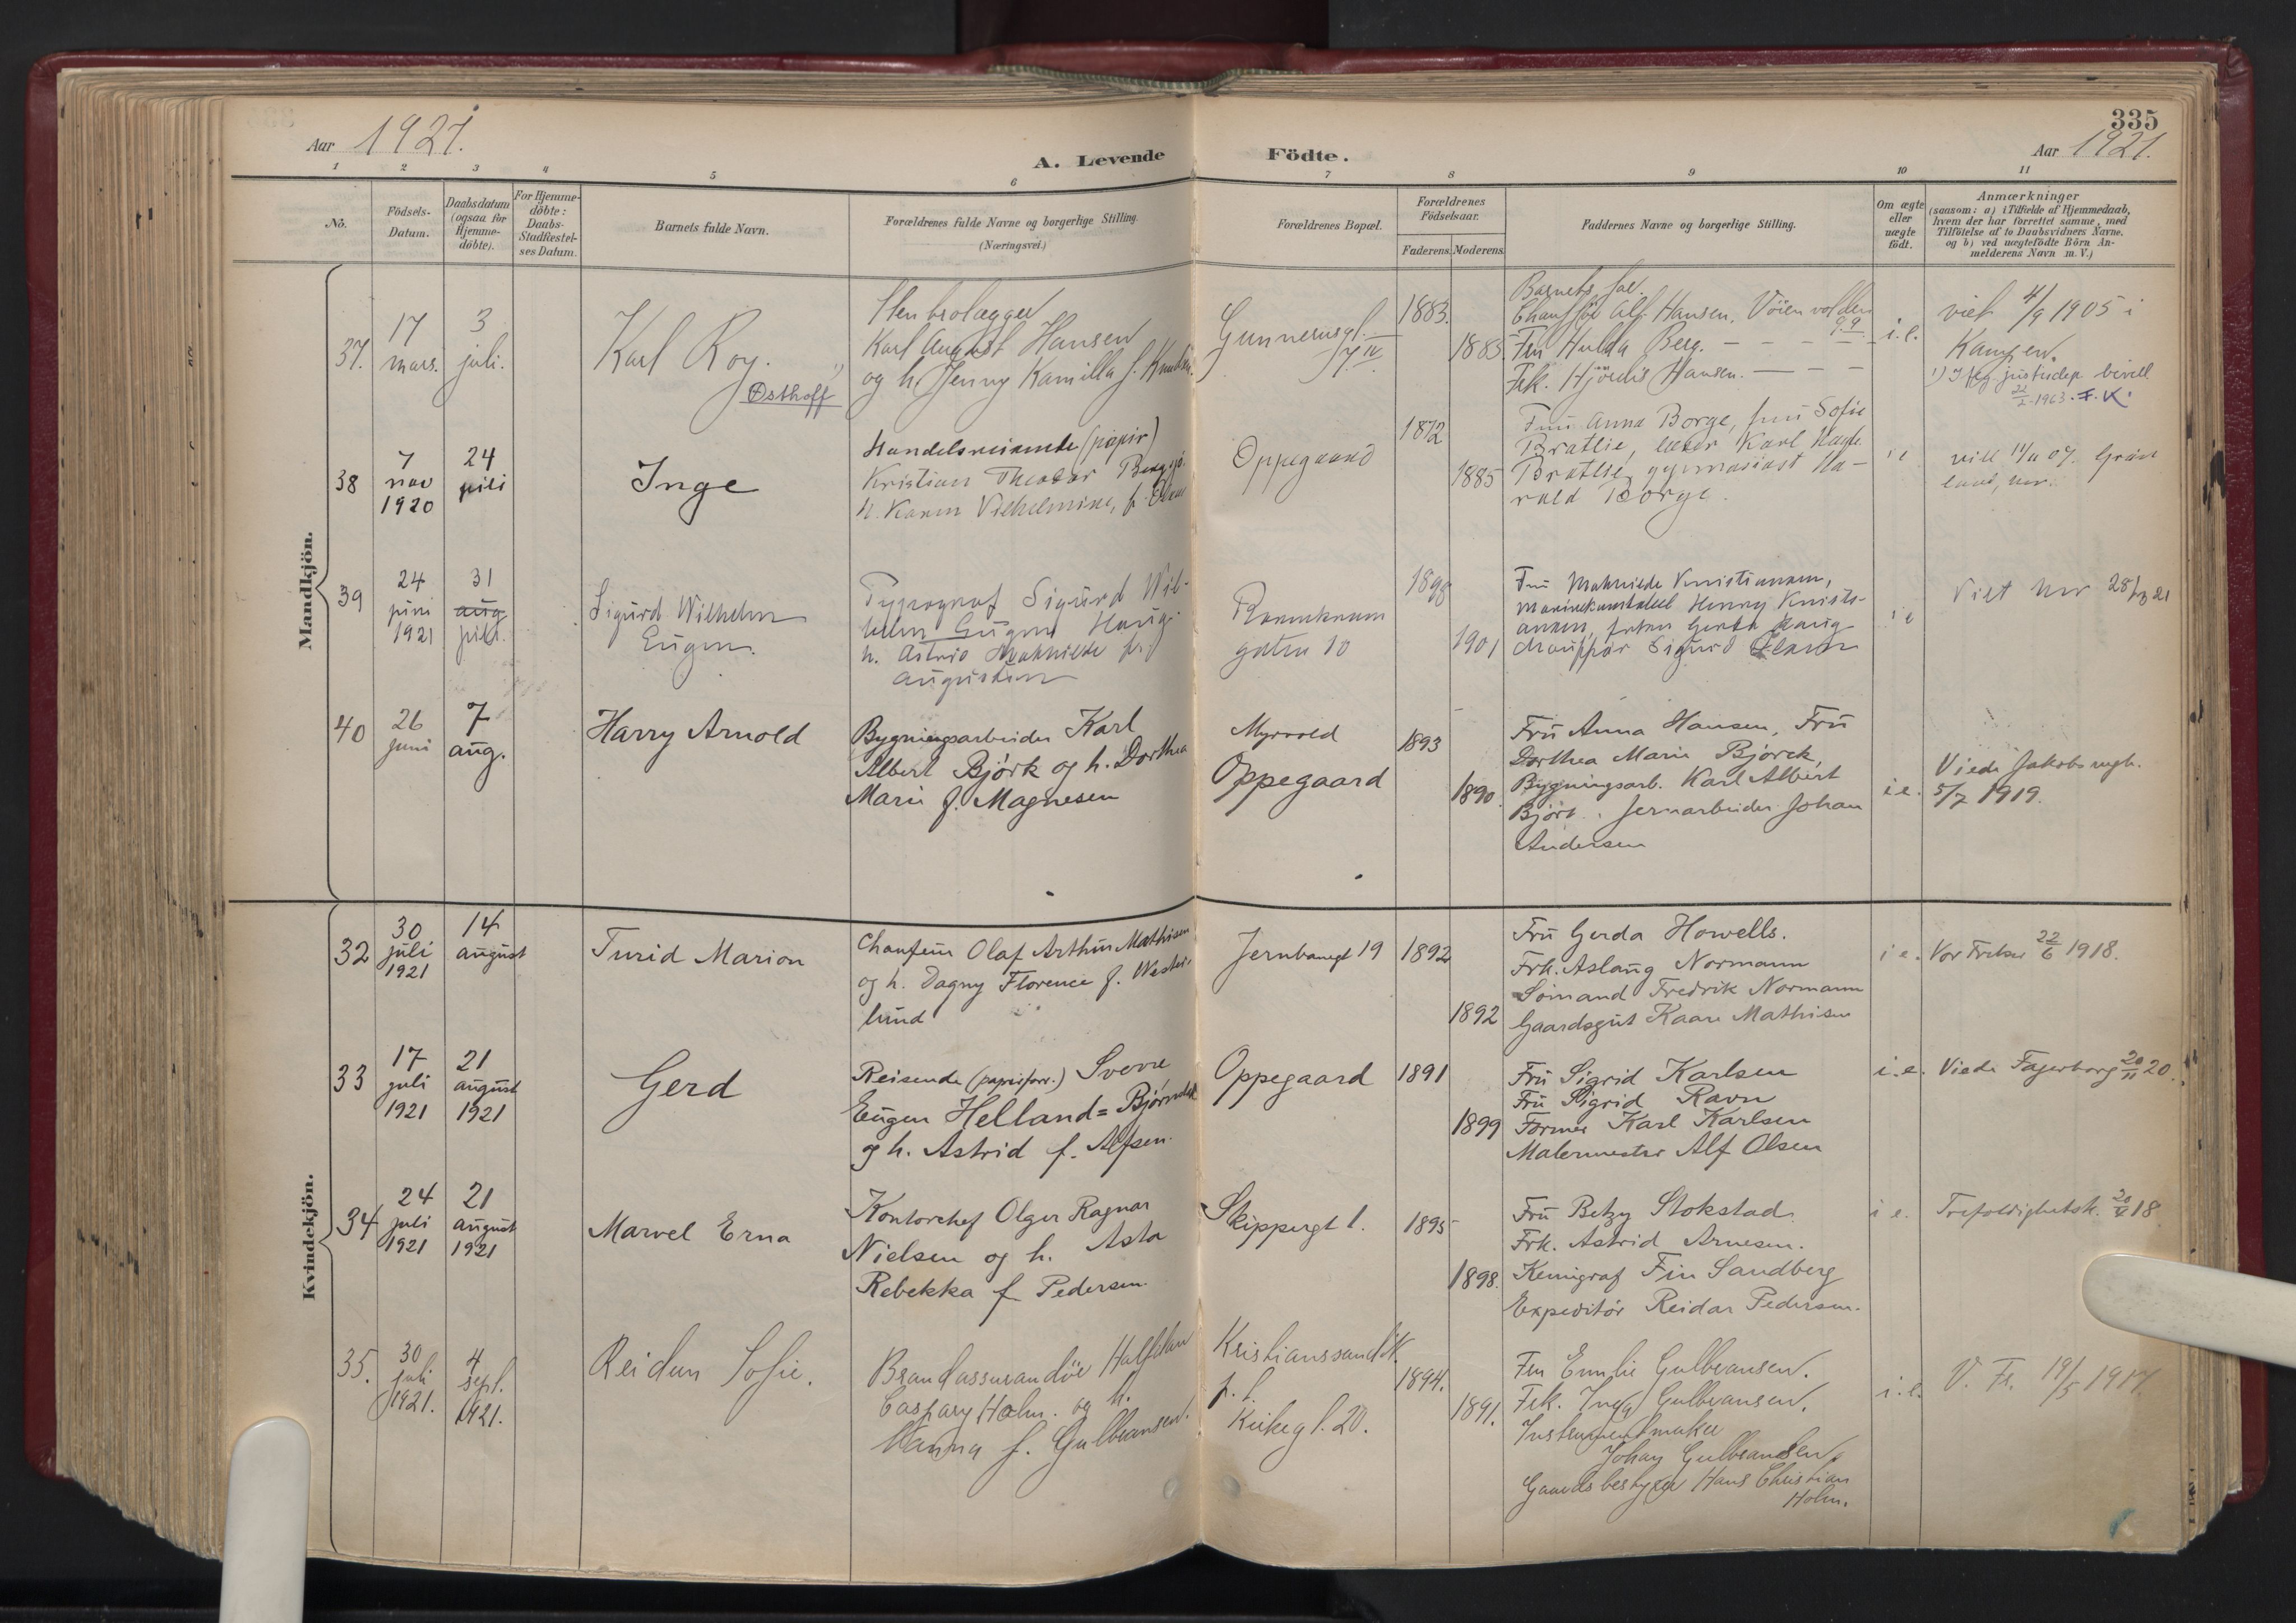 335
Aar 1921.
A. Levende Födte.
Aar 1921.
1 2 3 4 5 6 7 8 9 10 11
No.
Födsels-
Datum.
Daabsdatum
(ogsaa for
Hjemme-
döbte).
For Hjemme-
döbte:
Daabs-
Stadfæstel-
ses Datum.
Barnets fulde Navn.
Forældrenes fulde Navne og borgerlige Stilling.
(Næringsvei.)
Forældrenes Bopæl.
Forældrenes
Födselsaar.
Faderens. Moderens.
Faddernes Navne og borgerlige Stilling.
Om ægte
eller
uægte
födt.
Anmærkninger
(saasom: a) i Tilfælde af Hjemmedaab,
hvem der har forrettet samme, med
Tilföielse af to Daabsvidners Navne,
og b) ved uægtefödte Börn An-
melderens Navn m. V.)
Mandkjön.
37.
17
mars.
3
juli.
Karl Roy.
Osthoff
Stenbrolægger
Karl August Hansen
og h. Jenny Kamilla f. Knudsen.
Gunnerusgt.
7 IV
1883.
1883.
Barnets far.
Chauffør Alf Hansen. Vöienvolden
Fru Hulda Berg. — — —
Frk. Hjördis Hansen. — — —
i.e.
viet 4/9 1905 i
Kampen.
1) Iflg. justisdep. bevill.
22/2. 1963. F.K.
38
7
nov
1920
24
juli
Inge
Handelsreisende (papir)
Kristian Theodor
h. Karen Vilhelmine, f.
Oppegaard
1872
1885
Fru Anna Borge, fru Sofie
Bratlie, Karl
Bratlie, gymnasiast Ha-
rald Borge.
i e
39
24
juni
1921
31
aug
juli.
Sigurd Wilhelm
Eugen.
Typograf Sigurd Wil-
helm Eugen Haug
h. Astrid Mathilde f.
Augustsen
gaten 10
1898
1901
Fru Mathilde Kristiansen,
Henry Kristi-
ansen, frøken Gerda Haug
Sigurd Olsen
i e
Viet 28/3 21
40
26
juni
7
aug.
Harry Arnold
Bygningsarbeider Karl
Albert Björk og h. Dorthea
Marie f. Magnesen
Myrvold
Oppegaard
1893
1890
Fru Anna Hansen, Fru
Dorthea Marie Björck,
Bygningsarb. Karl Albert
Björk. Jernarbeider Johan
Andersen
i e.
Viede Jakobs mgh.
5/7 1919.
Kvindekjön.
32
30
juli
1921
14
august
Turid Marion
Chauffeur Olaf Arthur Mathisen
og h. Dagny Florence f. Wester-
lund
Jernbanegt 19
1892
1892
Fru Gerda Howells.
Frk. Aslaug Normann
Sömand Fredrik Normann
Gaardsgut Kaare Mathisen
i e.
Vor Frelser 22/6 1918.
33
17
juli
1921
21
august
1921
Gerd
Reisende (papirforr.) Sverre
Eugen Helland=Björndal
og h. Astrid f. Alfsen.
Oppegaard
1891
1899
Fru Sigrid Karlsen
Fru Sigrid Ravn
Former Karl Karlsen
Malermester Alf Olsen
i.e.
Viede Fagerborg 20/11 20.
34
24
juli
1921
21
august
1921
Marvel Erna
Kontorchef Olger Ragnar
Nielsen og h. Asta
Rebekka f Pedersen.
Skippergt 1.
1895
1898.
Fru Betzy Stokstad.
Frk. Astrid Arnesen.
Kemigraf Fin Sandberg
Expeditör Reidar Pedersen.
i e.
Trefoldighetsk. 18
35.
30
juli
1921.
4
sept.
1921.
Reidun Sofie.
Brandassurandör Halfdan
Caspary Holm. og h.
Nanna f. Gulbransen.
Kristianssand
p. t.
Kirkegt. 20.
1894.
1891.
Fru Emilie Gulbransen.
Frk. Inga Gulbransen.
Instrumentmaker
Johan Gulbrandsen,
Gaardsbestyrer Hans Christian
Holm.
i.e.
V. Fr. 19/5 1917.